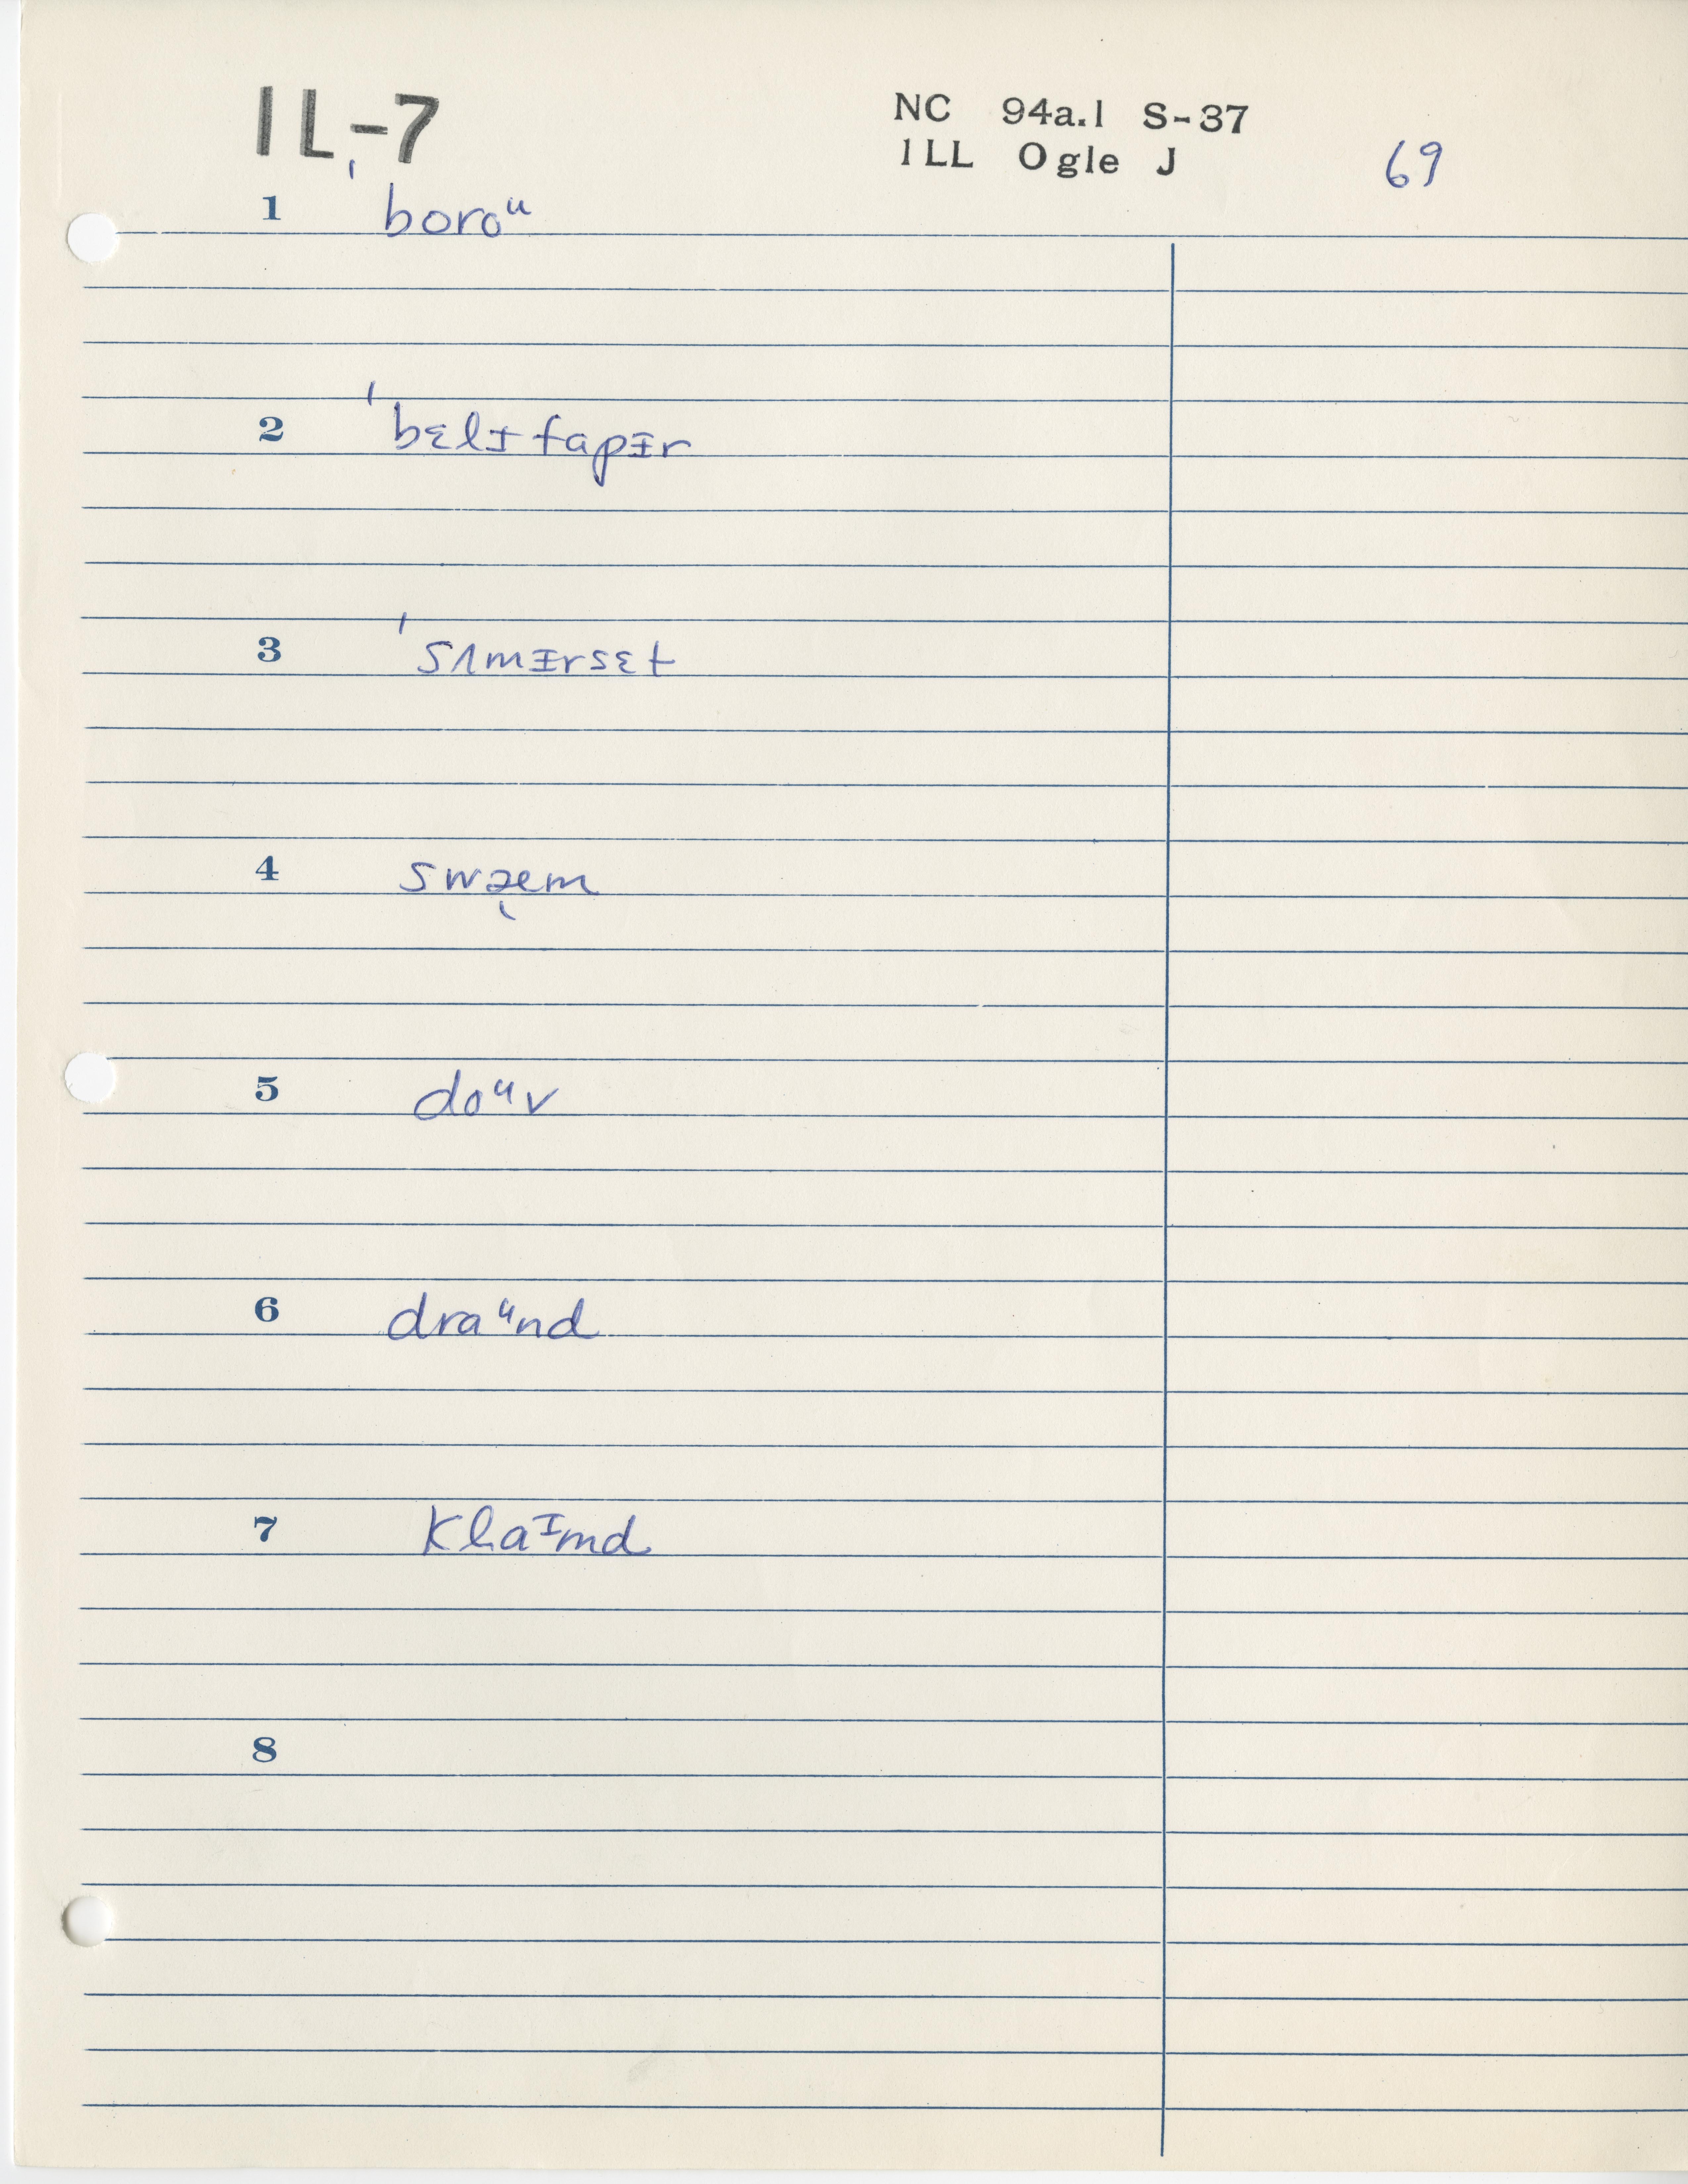 IL-7
NC 94a.1 S-37
ILL Ogle J
69
1 ˈboroᵘ
2 ˈbɛlɪfapɪr
3 ˈsʌmɪrsɛt
4 swæ̨m
5 doᵘv
6 draᵘnd
7 klaɪmd
8